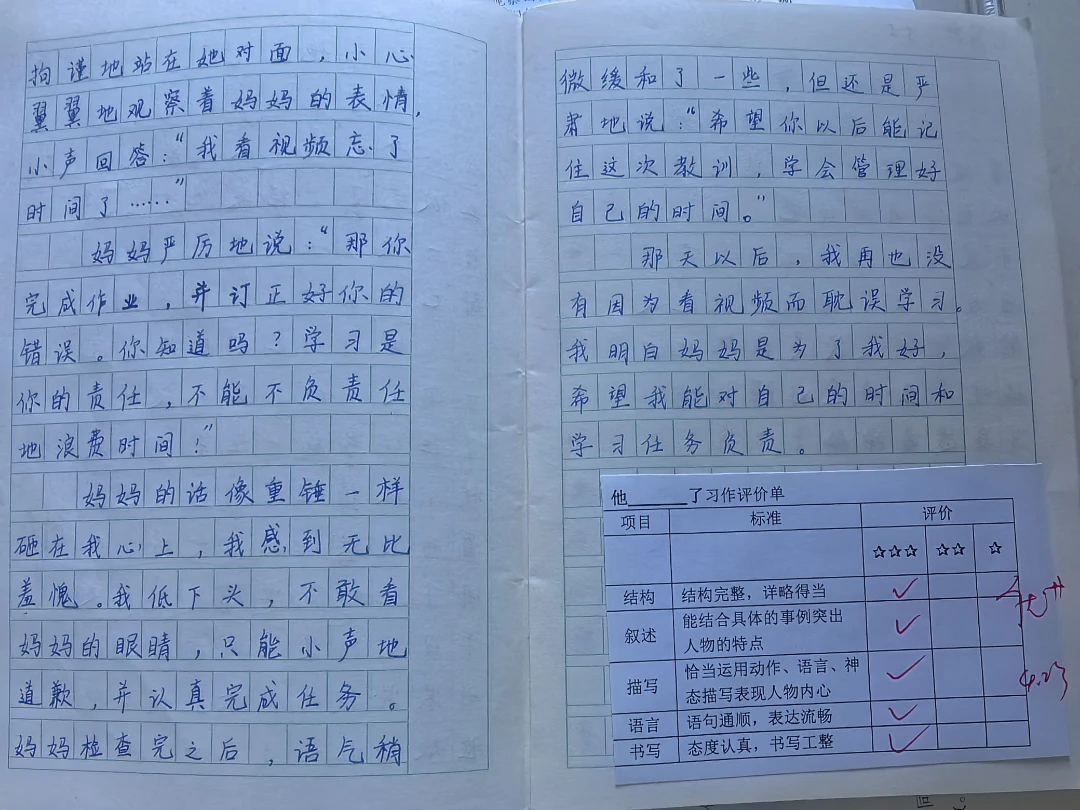 拘谨地站在她对面，小心
翼翼地观察着妈妈的表情，
小声回答：“我看视频忘了
时间了……”
妈妈严厉地说：“那你
完成作业，并订正好你的
错误。你知道吗？学习是
你的责任，不能不负责任
地浪费时间！”
妈妈的话像重锤一样
砸在我心上，我感到无比
羞愧。我低下头，不敢看
妈妈的眼睛，只能小声地
道歉，并认真完成任务。
妈妈检查完之后，语气稍
微缓和了一些，但还是严
肃地说：“希望你以后能记
住这次教训，学会管理好
自己的时间。”
那天以后，我再也没
有因为看视频而耽误学习。
我明白妈妈是为了我好，
希望我能对自己的时间和
学习任务负责。
他______了习作评价单
项目 标准 评价
☆☆☆ ☆☆ ☆
结构 结构完整，详略得当 ✓
叙述 能结合具体的事例突出
人物的特点 ✓
描写 恰当运用动作、语言、神
态描写表现人物内心 ✓
语言 语句通顺，表达流畅 ✓
书写 态度认真，书写工整 ✓